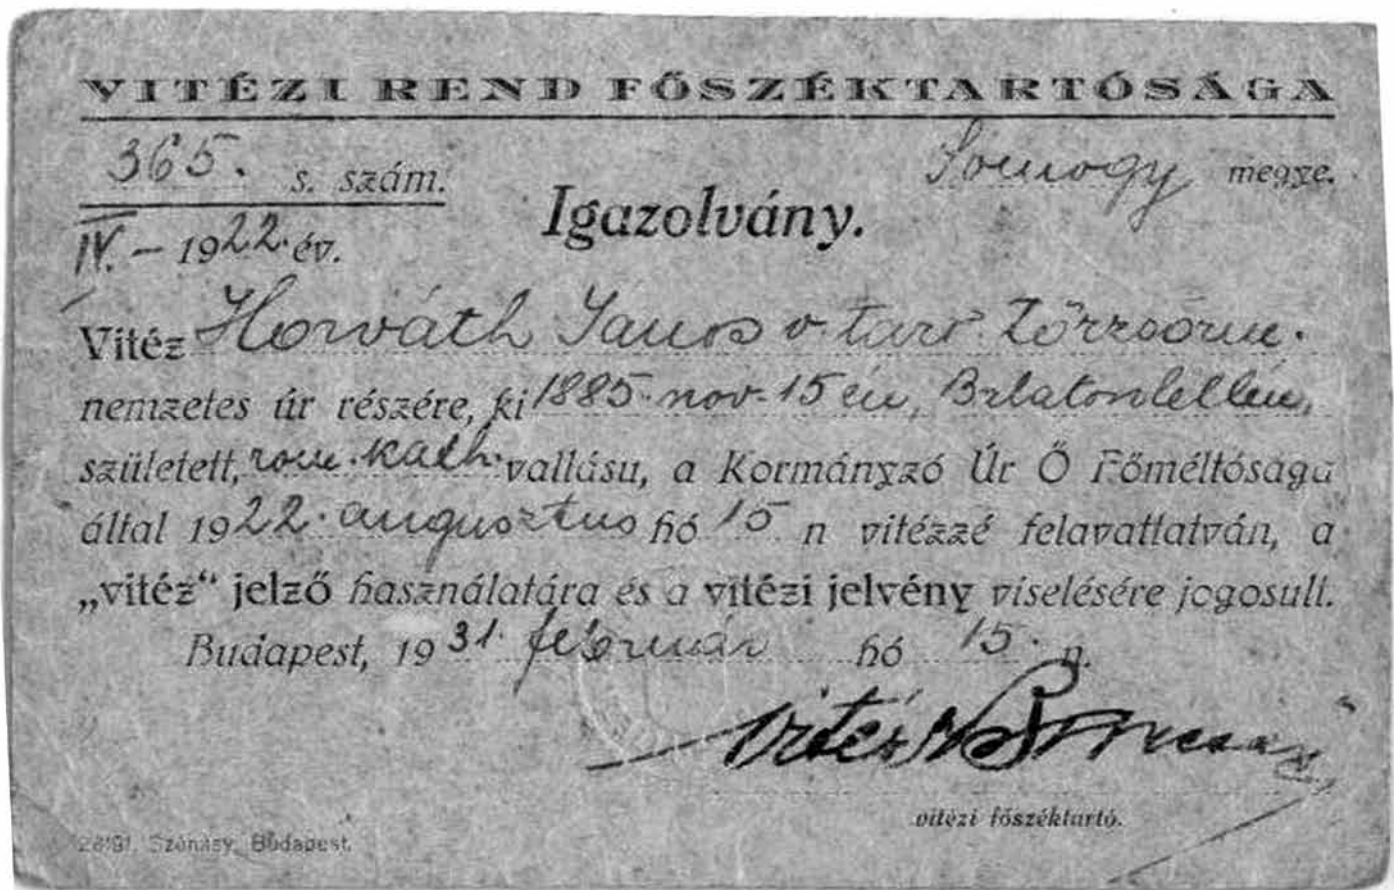 VITÉZI REND FŐSZÉKTARTÓSÁGA
365. s. szám. Somogy megye.
IV. – 1922. év. Igazolvány.
Vitéz Horváth János v. tart. törzsőrm.
nemzetes úr részére, ki 1885. nov. 15 én, Balatonlellén,
született, rom. kath. vallásu, a Kormányzó Úr Ő Főméltósága
által 1922. augusztus hó 15 n vitézzé felavattatván, a
„vitéz“ jelző használatára és a vitézi jelvény viselésére jogosult.
Budapest, 1931. február hó 15. n.
vitéz
vitézi főszéktartó.
Szénásy, Budapest.